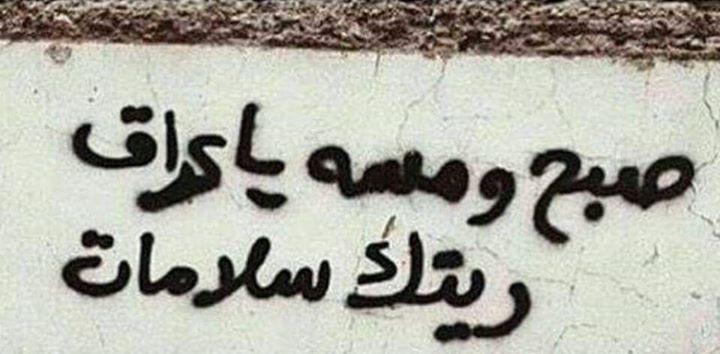 صبح ومسه يا عراق
ريتك سلامات